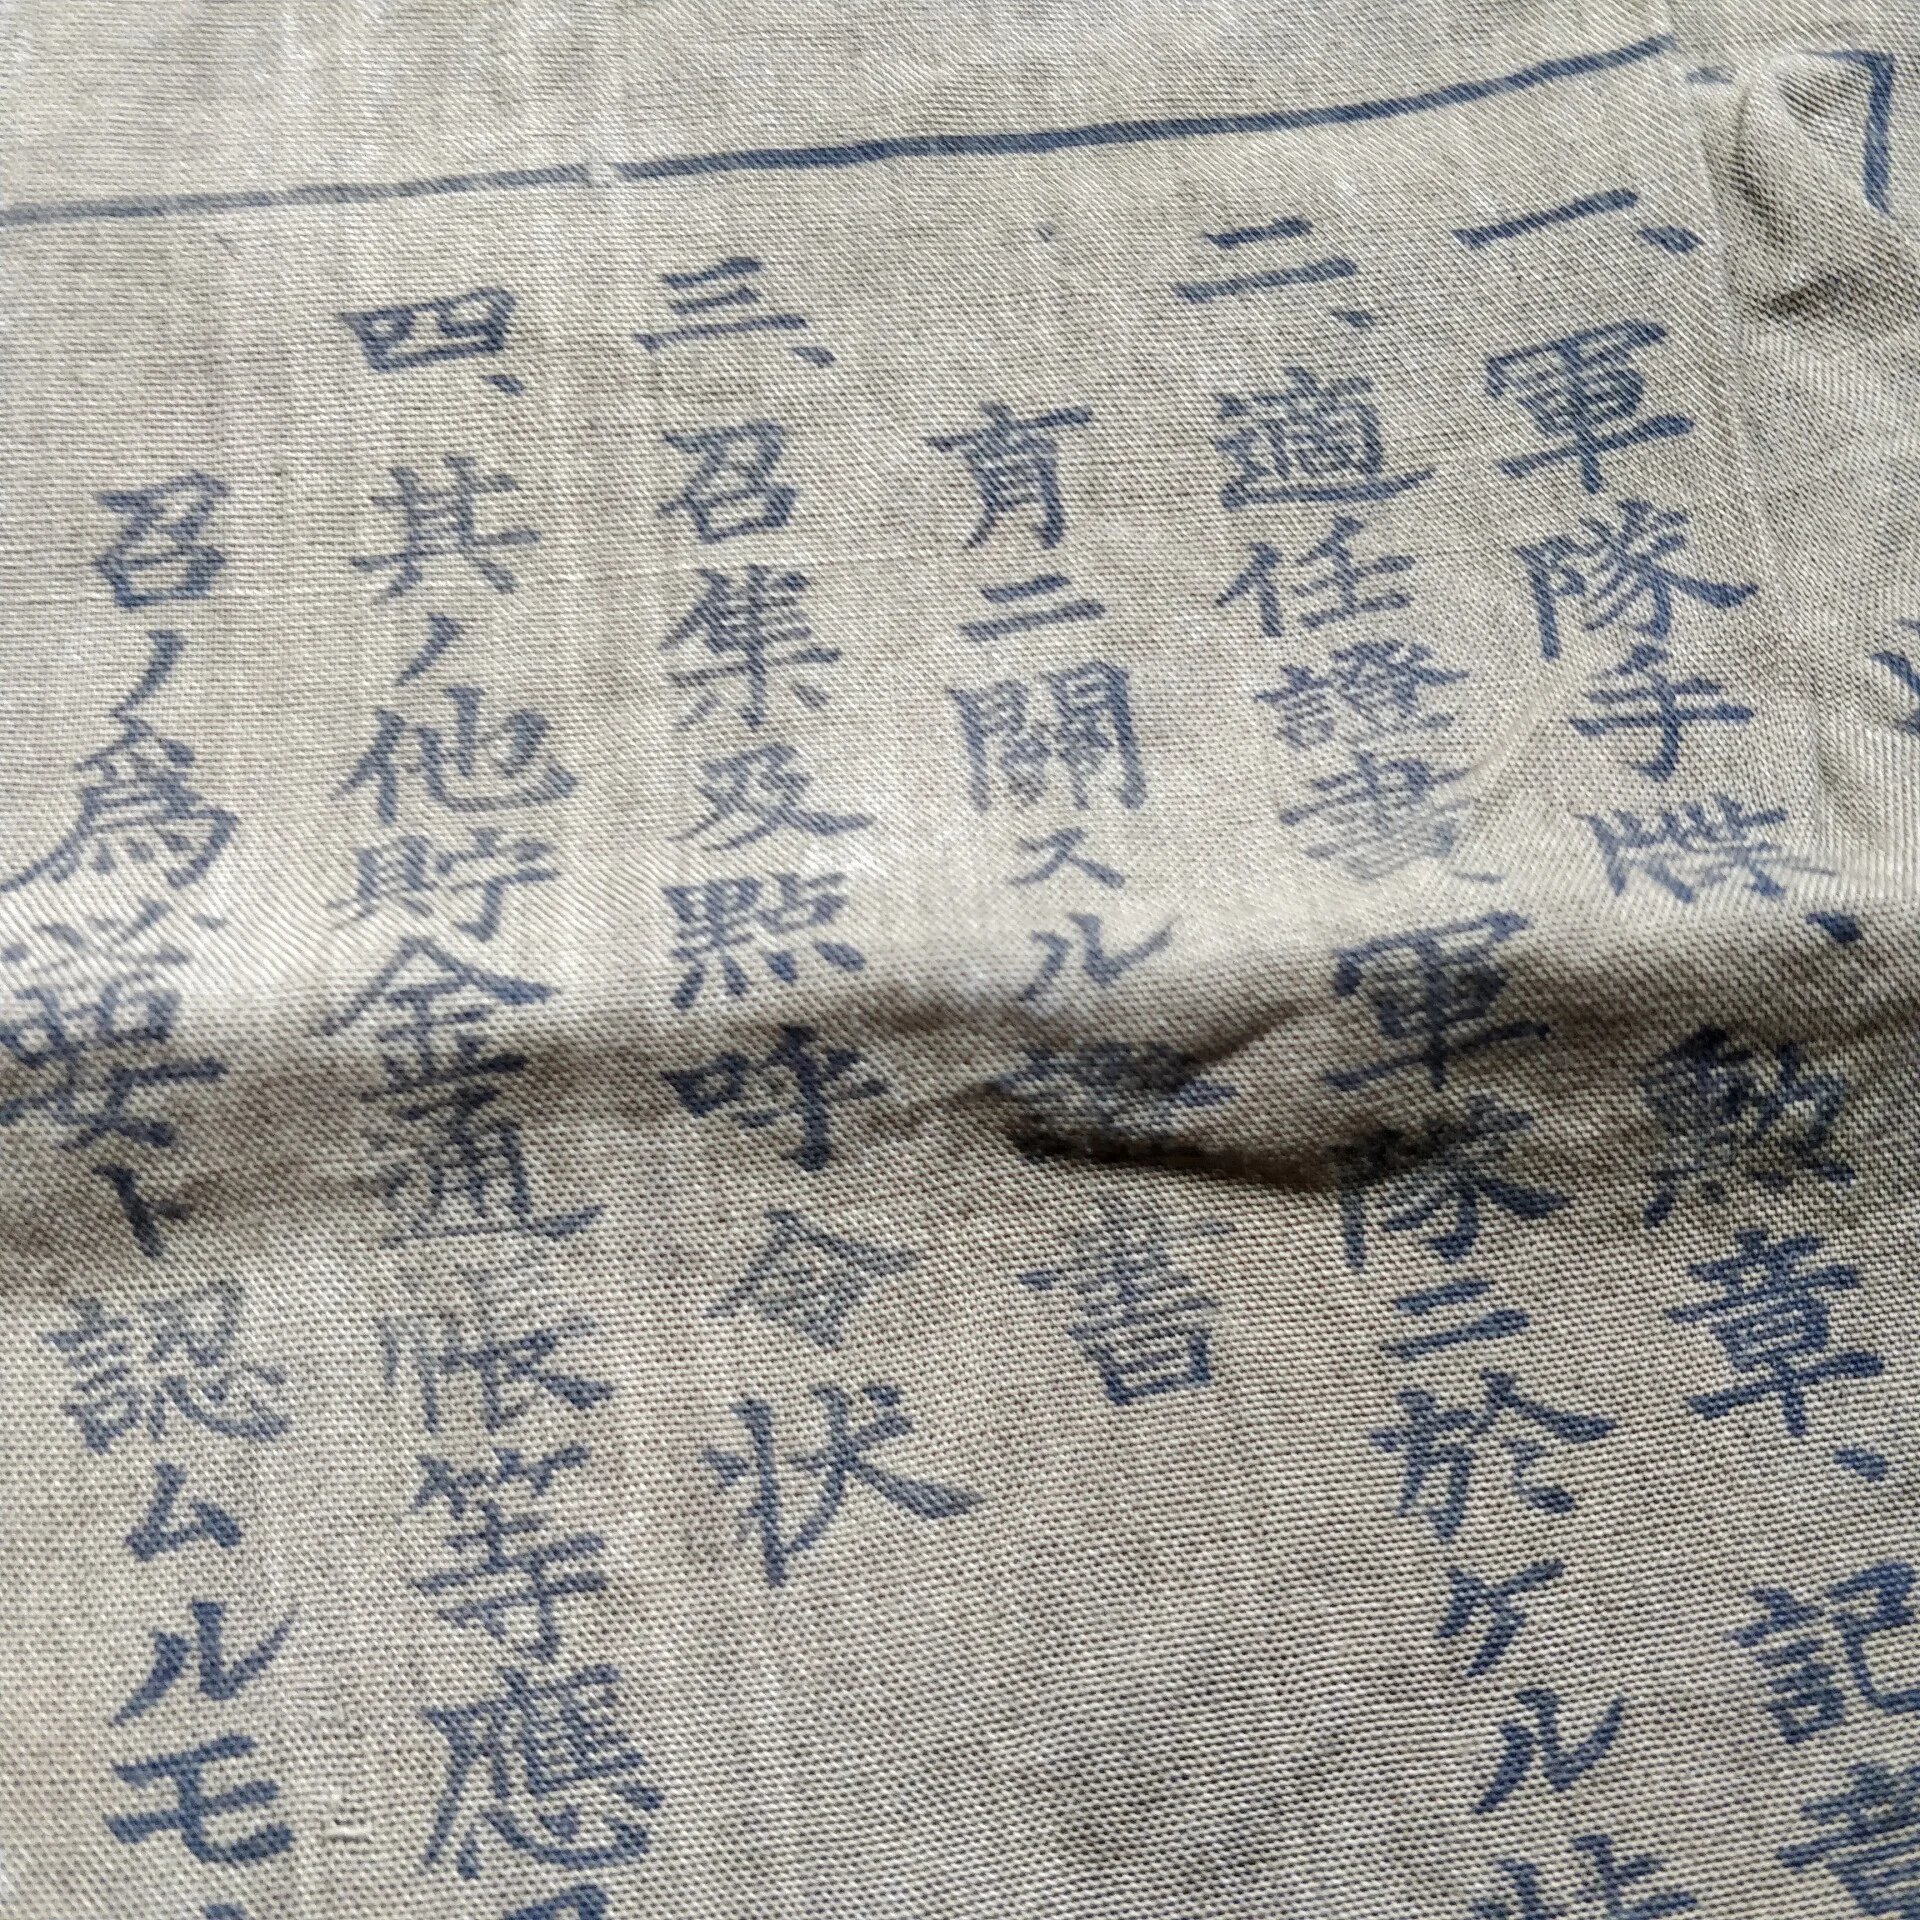 一、軍隊手牒、勲章、記章
二、適任證書軍隊ニ於ケル
育ニ關スル 書
三、召集及點呼令状
四、其ノ他貯金通帳等應
召ノ爲必要ト認ムルモ